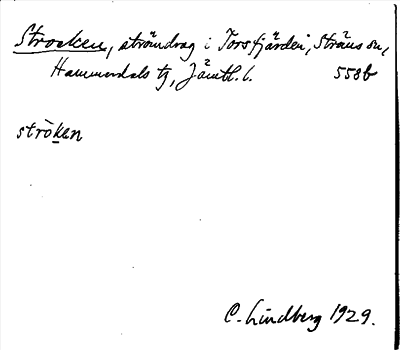 Stroaken, strömdrag i Torsfjärden, Ströms sn,
Hammerdals tg, Jämtl. l. 558b
strȯ̀k̲en
C. Lindberg 1929.